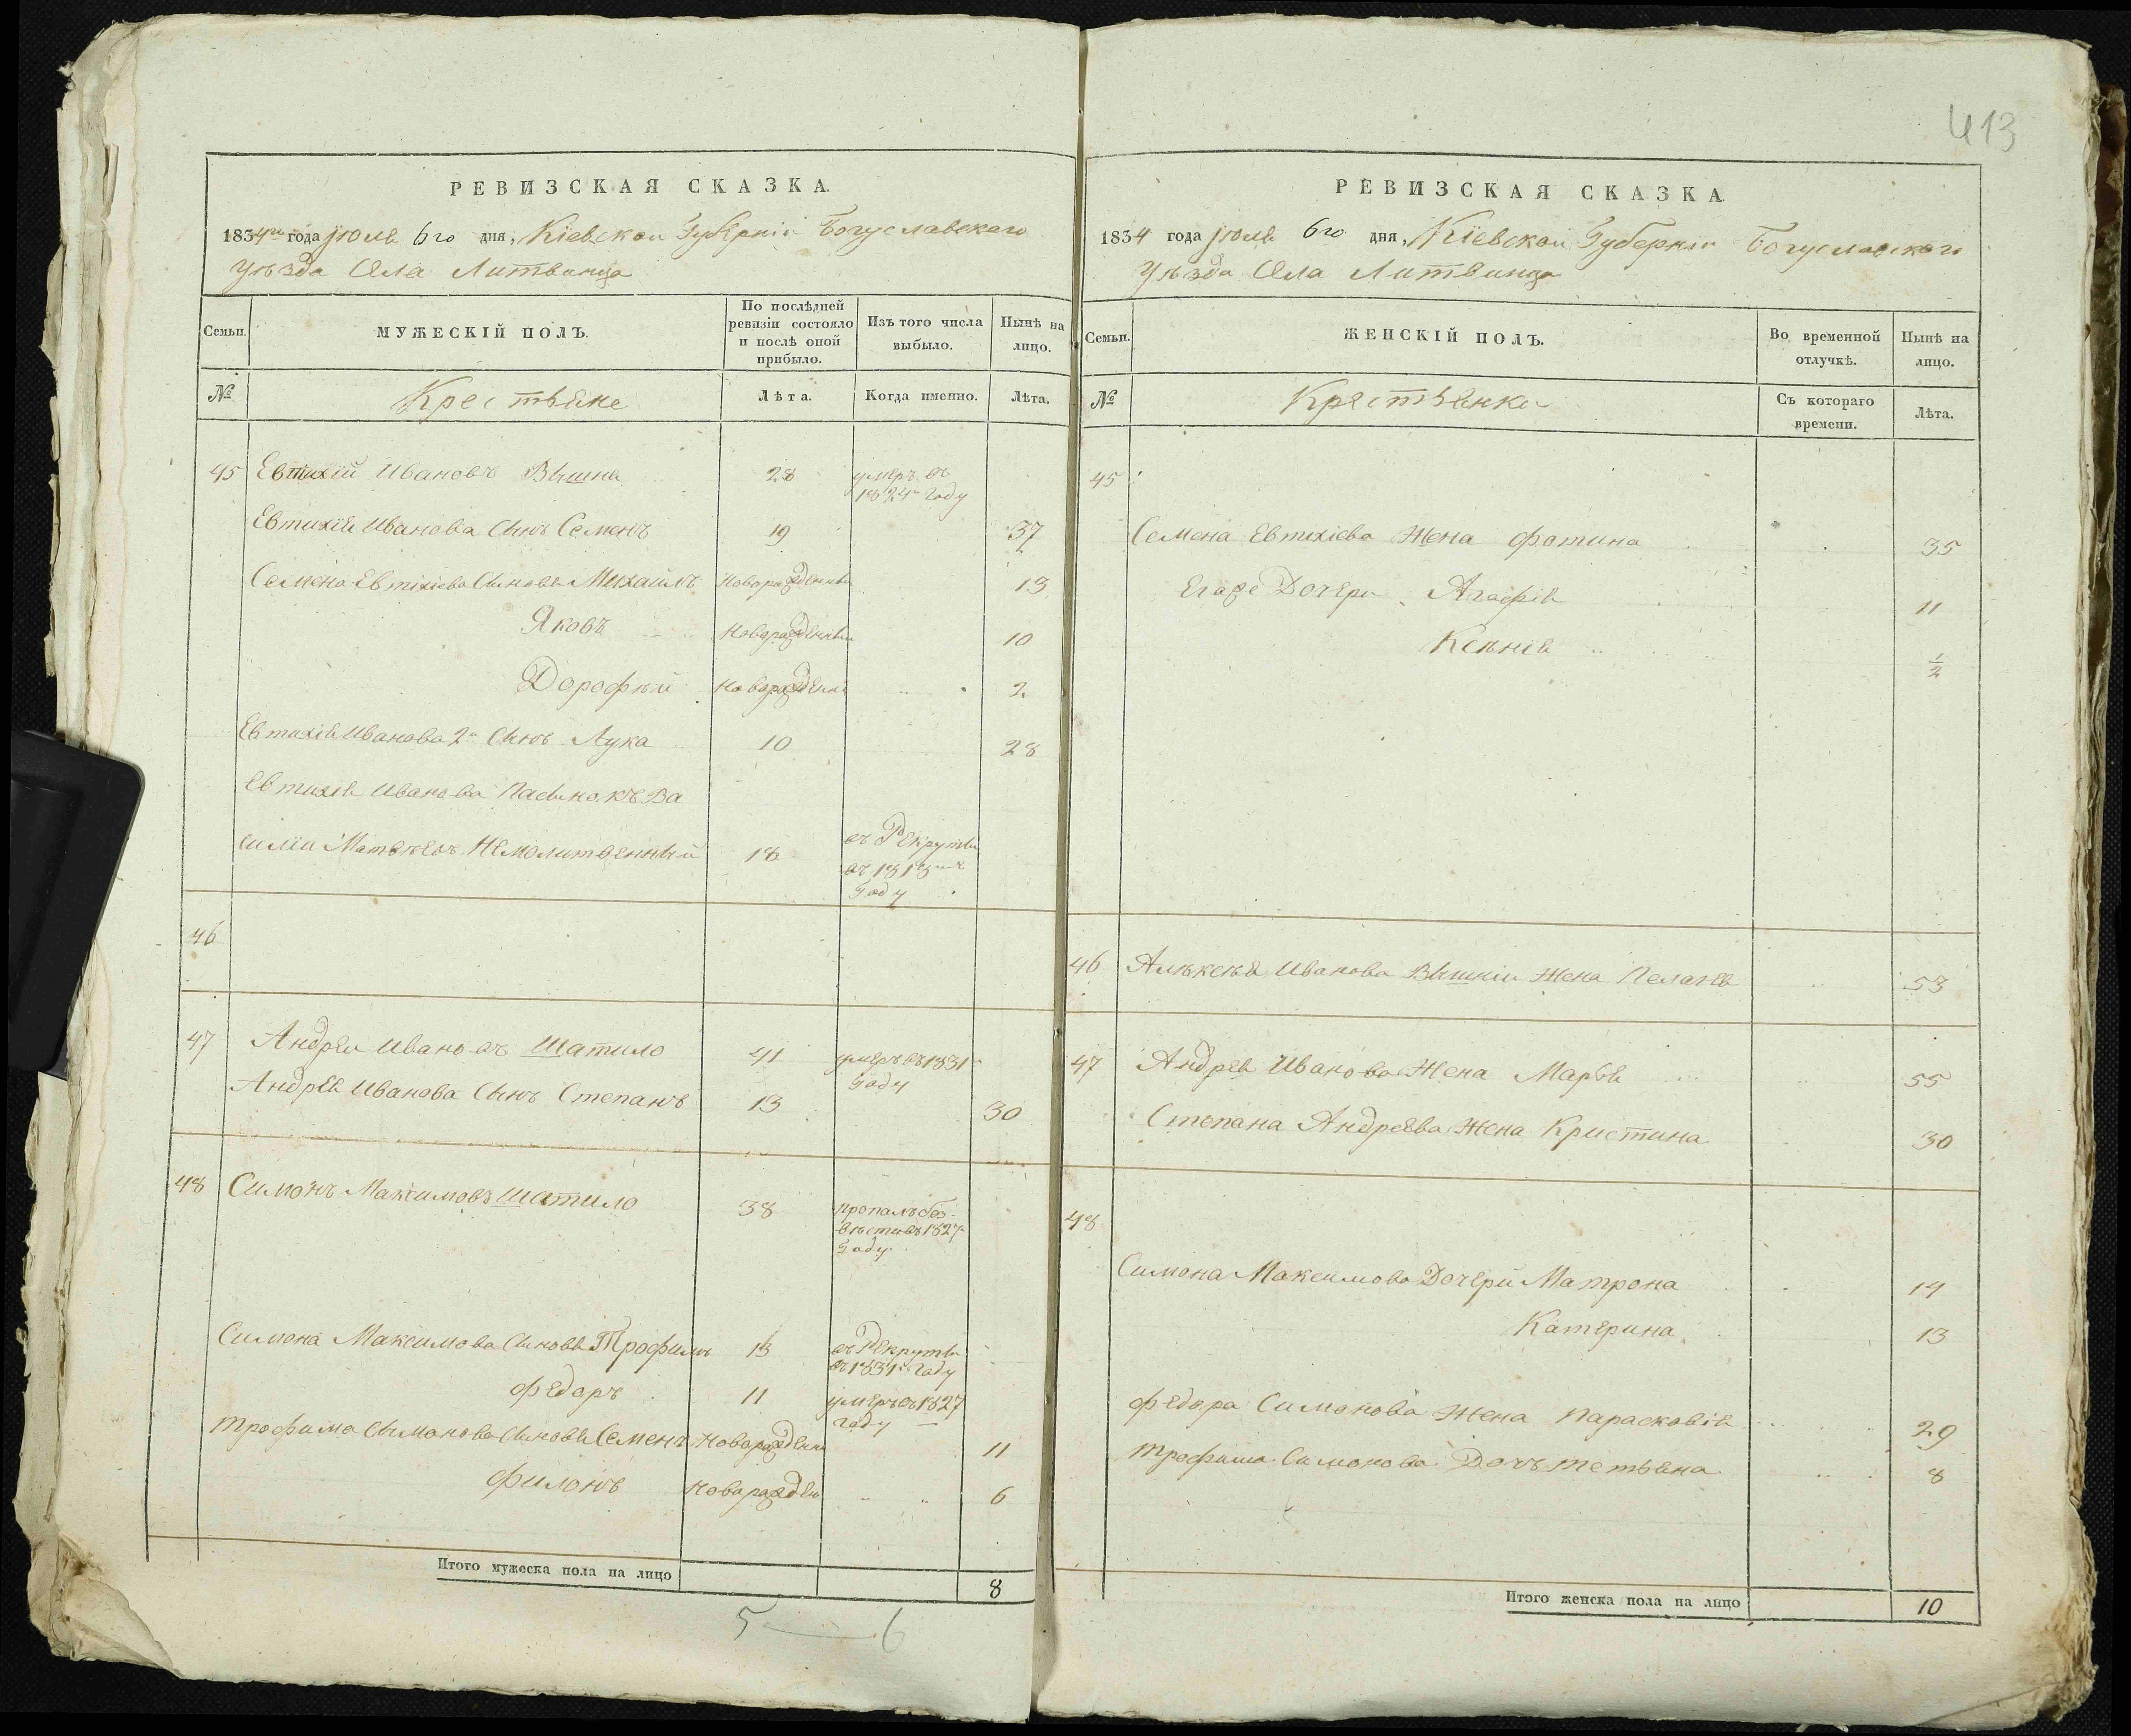 413
РЕВИЗСКАЯ СКАЗКА.
1834го года июля 6го дня, Кіевской Губерніи Богуславского
уѣзда Села Литвинца
Семьи.
МУЖЕСКІЙ ПОЛЪ.
По послѣдней
ревизіи состояло
и послѣ оной
прибыло.
Изъ того числа
выбыло.
Нынѣ на
лицо.
№
Крестьяне
Лѣта.
Когда именно.
Лѣта.
45 Евтихій Ивановъ Вышна 28 умеръ въ
1824м году
Евтихія Иванова Сынъ Семенъ 19 37
Семена Евтихіева Сыновья Михаилъ новорожденный 13
Яковъ новорожденный 10
Дорофѣй новорожден 2
Евтихія Иванова 2й Сынъ Лука 10 28
Евтихія Иванова Пасынокъ Ва
силіи Матвѣевъ Немолитвенный 18 въ Рекруты
въ 1818мъ
Году
46
47 Андрей Ивановъ Шатило 41 умеръ въ 1831м
Году
Андрея Иванова Сынъ Степанъ 13 30
48 Симонъ Максимовъ Шатило 38 пропалъ без-
вѣсти въ 1827м
Году
Симона Максимова Сыновья Трофимъ 13 въ Рекруты
въ 1831м Году
Федоръ 11 умеръ въ 1827
Году
Трофима Симонова Сыновья Семенъ Новорожден 11
Филонъ новорожден 6
Итого мужеска пола на лицо 8
5 — 6
РЕВИЗСКАЯ СКАЗКА
1834 года июля 6го дня, Кіевской Губерніи Богуславского
уѣзда Села Литвинца
Семьи.
ЖЕНСКІЙ ПОЛЪ.
Во временной
отлучкѣ.
Нынѣ на
лицо.
№
Крестьянки
Съ котораго
времени.
Лѣта.
45
Семена Евтихіева Жена Фотина 35
Егоже Дочери Агафія 11
Ксѣнія 1/2
46 Алѣксѣя Иванова Вышни Жена Пелагея 53
47 Андрея Иванова Жена Марья 55
Степана Андреева Жена Кристина 30
48
Симона Максимова Дочери Матрона 14
Катерина 13
Федора Симонова Жена Парасковія 29
Трофима Симонова Дочь Тетьяна 8
Итого женска пола на лицо 10